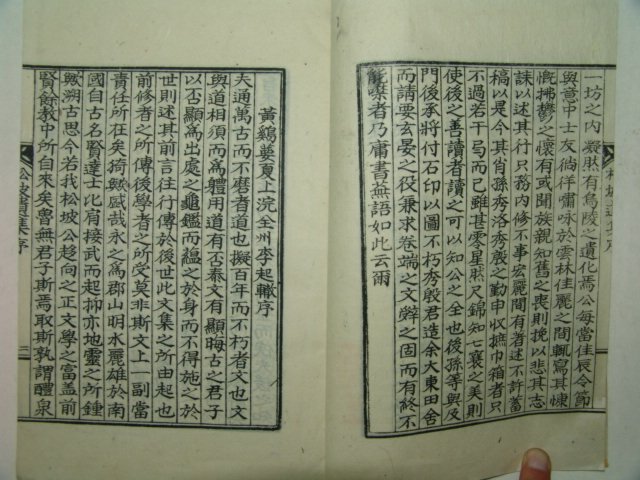 一坊之內凝然有鳥陵之遺化焉公每當佳辰令節
與意中士友徜徉嘯咏於雲林佳麗之間輒寫其悚
慨拂鬱之懷有或聞族親知舊之喪則挽以悲其志
誄以述其行只務內修不事宏麗間有著述不許蓄
稿以是今其肖孫秀洛秀殷之勤申收摭巾箱者只
不過若干弓而已雖甚零星然尺錦知七襄之美則
使後之善讀者讀之可以知公之全也後孫等與及
門後承將付石印以圖不朽秀殷君造余大東田舍
而請要玄晏之役兼求卷端之文辭之固而有終不
能噤者乃庸書蕪語如此云爾
黃鷄蔞夏上浣全州李起轍序
夫通萬古而不磨者道也擬百年而不朽者文也文
與道相須而爲體用道有否泰文有顯晦古之君子
以否顯爲出處之龜鑑而蘊之於身而不得施之於
世則述其前言往行傳於後世此文集之所由起也
前修者之所傳後學者之所受莫非斯文上一副當
責任所在矣猗歟戲哉永之爲郡山明水麗雄於南
國自古名賢達士比肩接武而起抑亦地靈之所鍾
歟溯古思今若我松坡公趍向之正文學之富盖前
賢餘敎中所自來矣魯無君子斯焉取斯孰謂醴泉
松坡遺集序
二